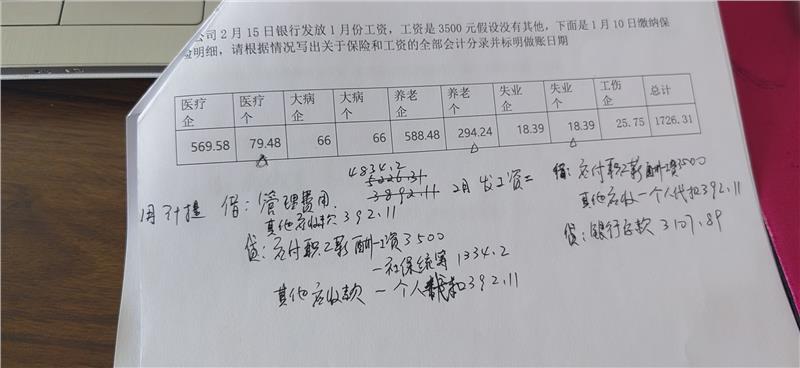 公司2月15日银行发放1月份工资，工资是3500元假设没有其他，下面是1月10日缴纳保
险明细，请根据情况写出关于保险和工资的全部会计分录并标明做账日期
医疗企 医疗个 大病企 大病个 养老企 养老个 失业企 失业个 工伤企 总计
569.58 79.48 66 66 588.48 294.24 18.39 18.39 25.75 1726.31
4834.2
5226.31
1月计提 借：管理费用 3892.11
其他应收款 392.11
贷：应付职工薪酬-工资3500
-社保统筹 1334.2
其他应收款-个人代扣392.11
2月发工资：借：应付职工薪酬-工资3500
其他应收-个人代扣392.11
贷：银行存款 3107.89